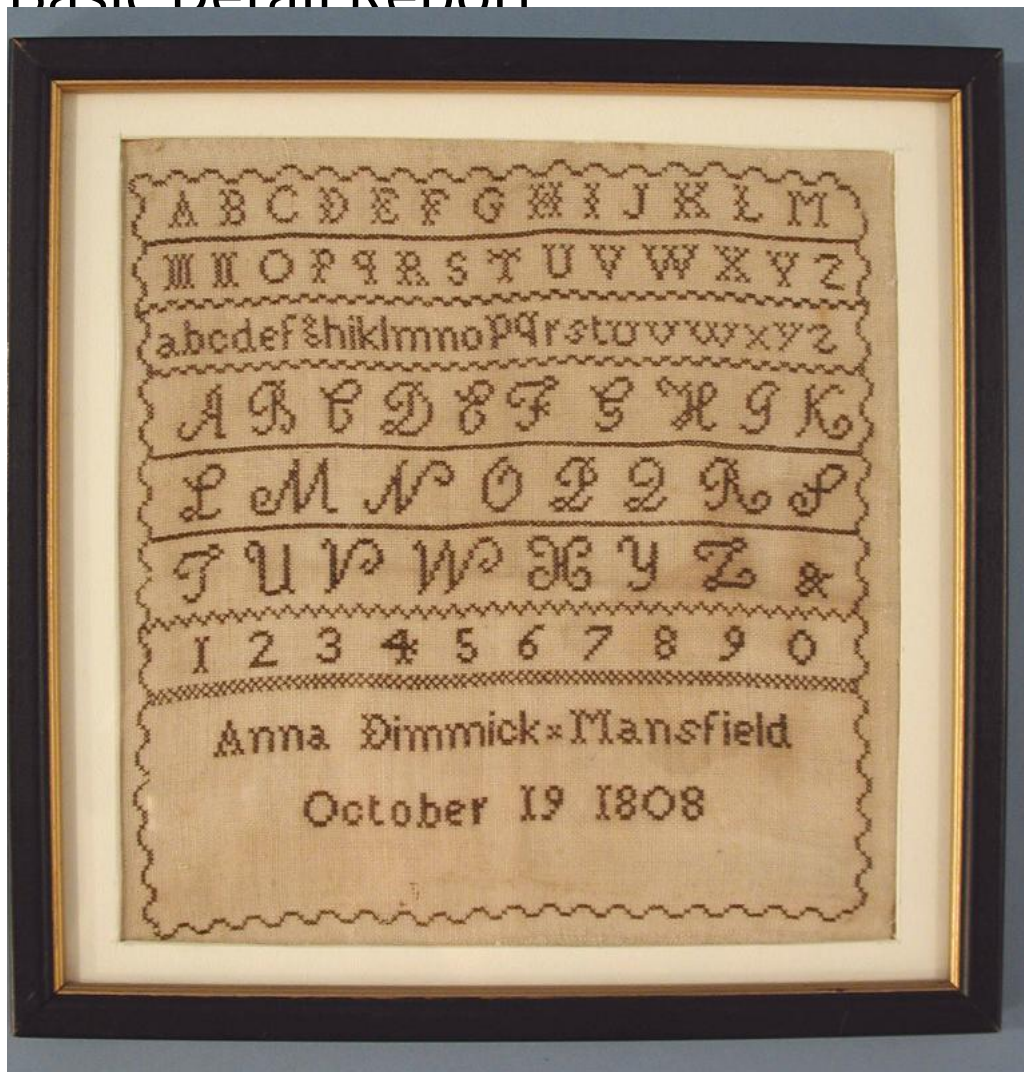 Basic Detail Report
A B C D E F G H I J K L M
M N O P q R S T U V W X Y Z
abcdefghiklmnopqrstuvwxyz
A B C D E F G H I K
L M N O P Q R S
T U V W X Y Z &
1 2 3 4 5 6 7 8 9 0
Anna Dimmick × Mansfield
October 19 1808